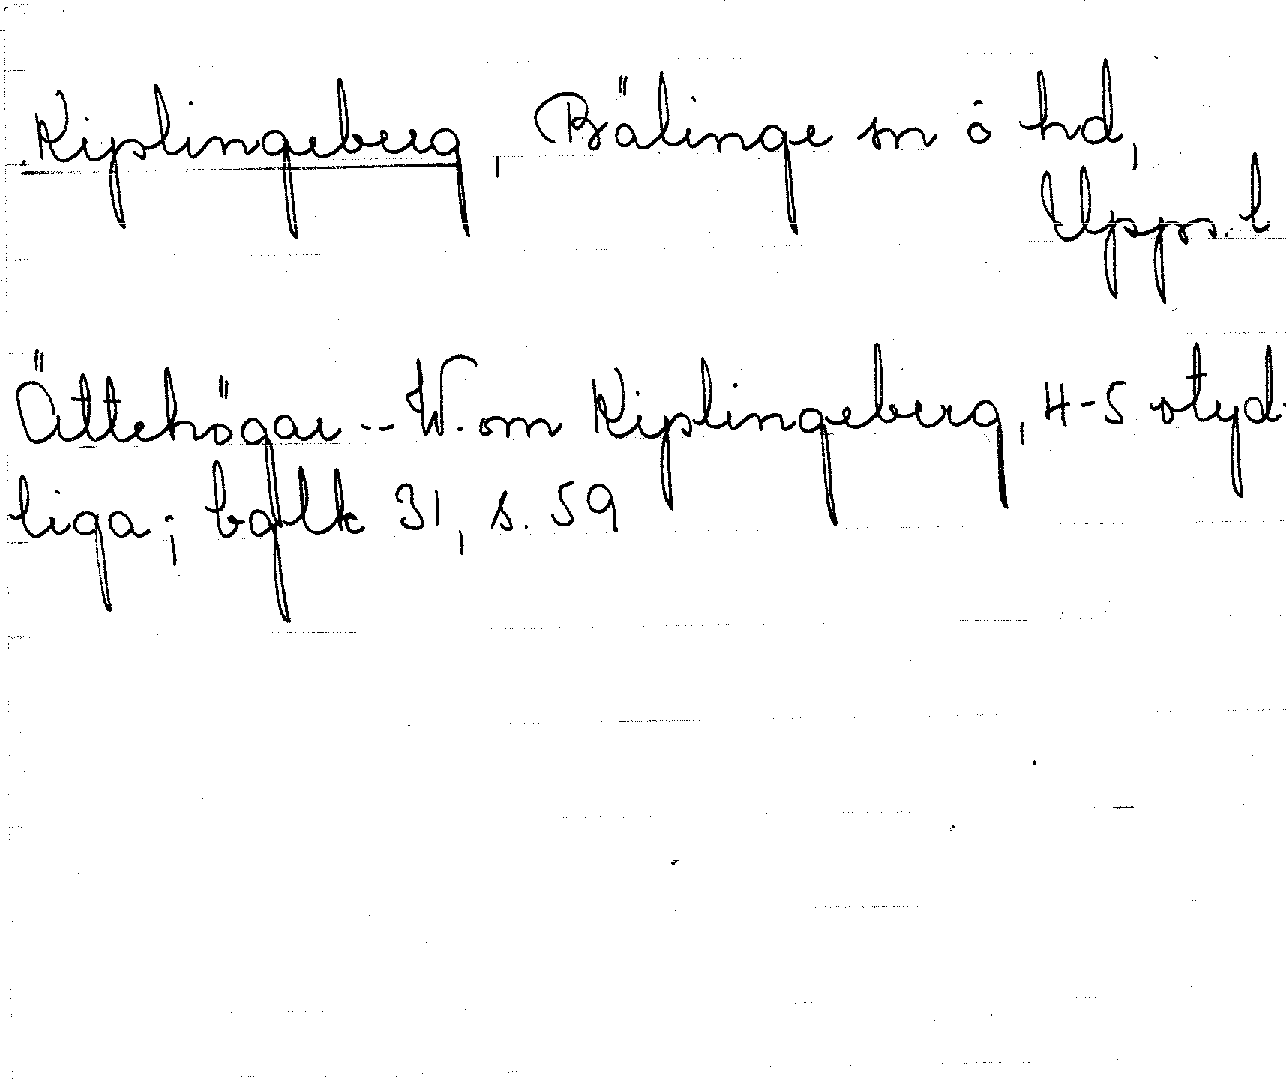 Kiplingeberg, Bälinge sn o hd,
Upps. l
Ättehögar -- W. om Kiplingeberg, 4-5 otyd-
liga; bqlk 31, s. 59